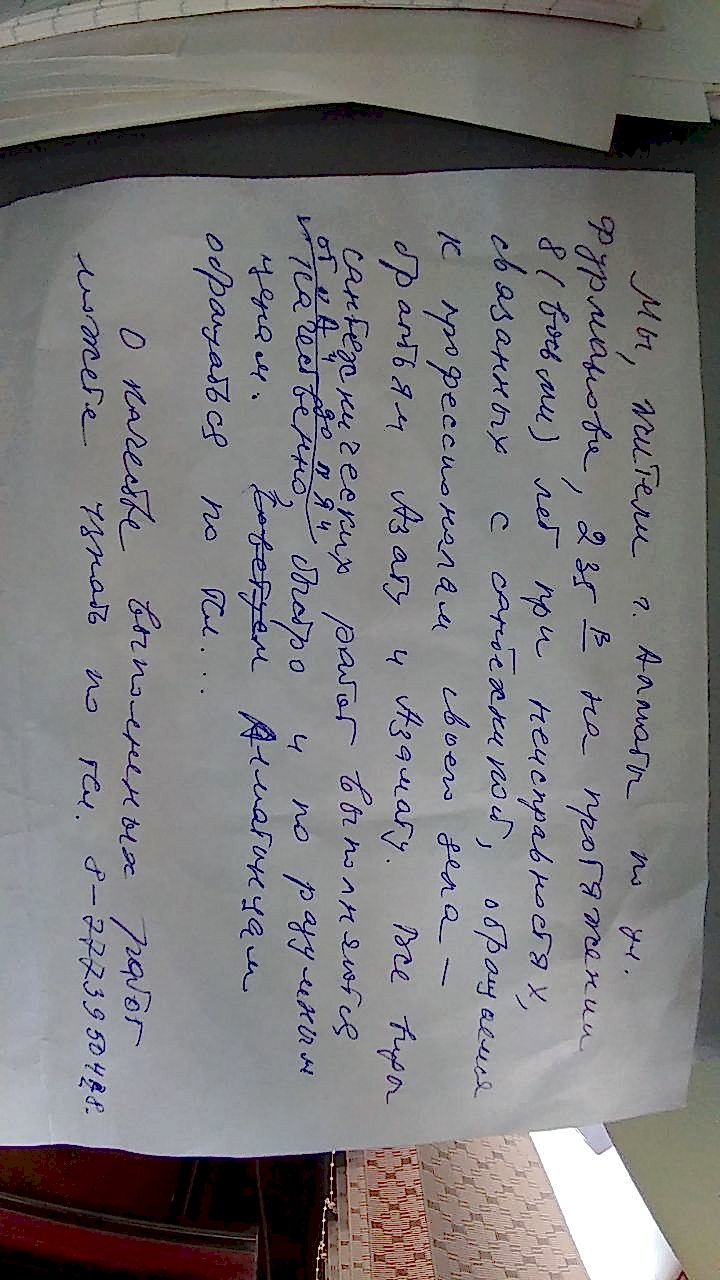 Мы, жители г. Алматы по ул.
Фурманова, 235 В на протяжении
8 (восьми) лет при неисправностях,
связанных с сантехникой, обращаемся
к профессионалам своего дела –
братьям Азату и Азамату. Все виды
сантехнических работ выполняются
от "А" до "Я"
качественно, быстро и по разумным
ценам. Советуем Алматинцам
обращаться по тел...
О качестве выполненных работ
можете узнать по тел. 8-7773950428.